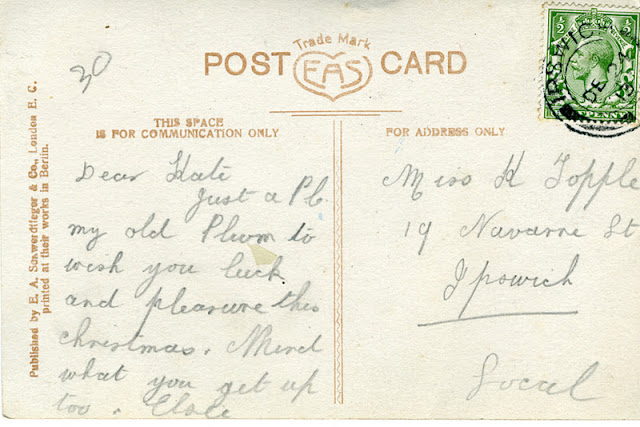 Trade Mark
POST EAS CARD
THIS SPACE
IS FOR COMMUNICATION ONLY
FOR ADDRESS ONLY
Published by E. A. Schwerdtfeger & Co., London E. C.
printed at their works in Berlin.
30
Dear Kate
Just a P.C.
my old Plum to
wish you luck
and pleasure this
christmas. Mind
what you get up
too. Elsie
Miss K Topple
19 Navarre St
Ipswich
Local
½ ½
PENNY
IPSWICH
DE 24